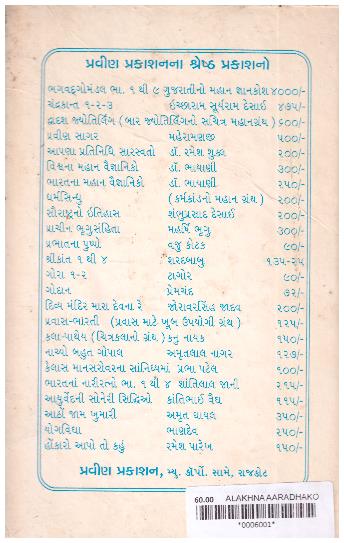 પ્રવીણ પ્રકાશનના શ્રેષ્ઠ પ્રકાશનો
ભગવદ્ગોમંડલ ભા. ૧ થી ૯ ગુજરાતીનો મહાન જ્ઞાનકોશ ૪૦૦૦/-
ચંદ્રકાન્ત ૧-૨-૩ ઇચ્છારામ સૂર્યરામ દેસાઈ ૪૭૫/-
દ્વાદશ જ્યોતિર્લિંગ (બાર જ્યોતિર્લિંગનો સચિત્ર મહાનગ્રંથ) ૬૦૦/-
પ્રવીણ સાગર મહેરામણજી ૫૦૦/-
આપણા પ્રતિનિધિ સારસ્વતો ડૉ. રમેશ શુક્લ ૨૦૦/-
વિશ્વના મહાન વૈજ્ઞાનિકો ડૉ. ભાયાણી ૩૦૦/-
ભારતના મહાન વૈજ્ઞાનિકો ડૉ. ભાયાણી ૨૫૦/-
ધર્મસિન્ધુ (કર્મકાંડનો મહાન ગ્રંથ) ૨૦૦/-
સૌરાષ્ટ્રનો ઇતિહાસ શંભુપ્રસાદ દેસાઈ ૨૦૦/-
પ્રાચીન ભૃગુસંહિતા મહર્ષિ ભૃગુ ૩૦૦/-
પ્રભાતના પુષ્પો વજુ કોટક ૯૦/-
શ્રીકાંત ૧ થી ૪ શરદબાબુ ૧૩૫-૨૫
ગોરા ૧-૨ ટાગોર ૯૦/-
ગોદાન પ્રેમચંદ ૭૨/-
દિવ્ય મંદિર મારા દેવના રે જોરાવરસિંહ જાદવ ૨૦૦/-
પ્રવાસ-ભારતી (પ્રવાસ માટે ખુબ ઉપયોગી ગ્રંથ) ૧૨૫/-
કલા-પાથેય (ચિત્રકલાનો ગ્રંથ) કનુ નાયક ૧૫૦/-
નાચ્યો બહુત ગોપાલ અમૃતલાલ નાગર ૧૨૭/-
કૈલાસ માનસરોવરના સાંનિધ્યમાં પ્રભા પટેલ ૧૦૦/-
ભારતનાં નારીરત્નો ભા. ૧ થી ૪ શાંતિલાલ જાની ૨૧૫/-
આયુર્વેદની સોનેરી સિદ્ધિઓ કાંતિભાઈ વૈદ્ય ૧૧૫/-
આઠોં જામ ખુમારી અમૃત ઘાયલ ૩૫૦/-
યોગવિદ્યા ભાણદેવ ૨૫૦/-
હોંકારો આપો તો કહું રમેશ પારેખ ૧૫૦/-
પ્રવીણ પ્રકાશન, મ્યુ. કૉર્પો. સામે, રાજકોટ
60.00 ALAKHNA AARADHAKO
*0006001*